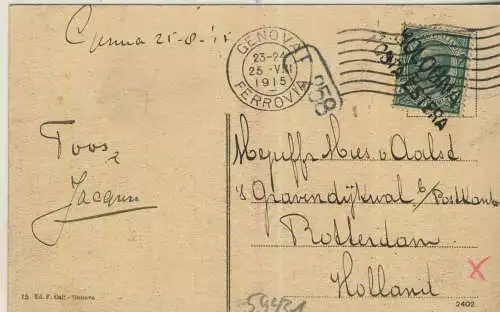 Genua 25-8-'15
GENOVA
23-24
25-VIII
1915
FERROVIA
258
BOLOGNA
POSTA ESTERA
Toos
&
Jacques
Mejuffr Mies v. Aalst
's Gravendijkwal b/Postkant
Rotterdam
Holland
X
15 Ed. F. Gall - Genova
2402